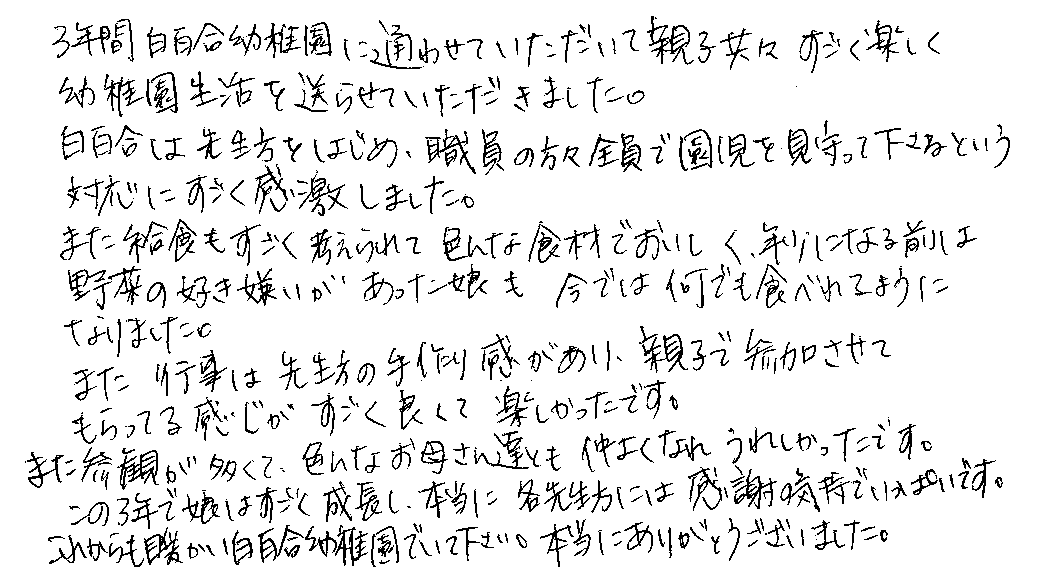 3年間白百合幼稚園に通わせていただいて親子共々すごく楽しく
幼稚園生活を送らせていただきました。
白百合は先生方をはじめ、職員の方々全員で園児を見守って下さるという
対応にすごく感激しました。
また給食もすごく考えられて色んな食材でおいしく、年少になる前は
野菜の好き嫌いがあった娘も今では何でも食べれるように
なりました。
また行事は先生方の手作り感があり、親子で参加させて
もらってる感じがすごく良くて楽しかったです。
また参観が多くて、色んなお母さん達とも仲よくなれうれしかったです。
この3年で娘はすごく成長し、本当に各先生方には感謝の気持でいっぱいです。
これからも暖かい白百合幼稚園でいて下さい。本当にありがとうございました。